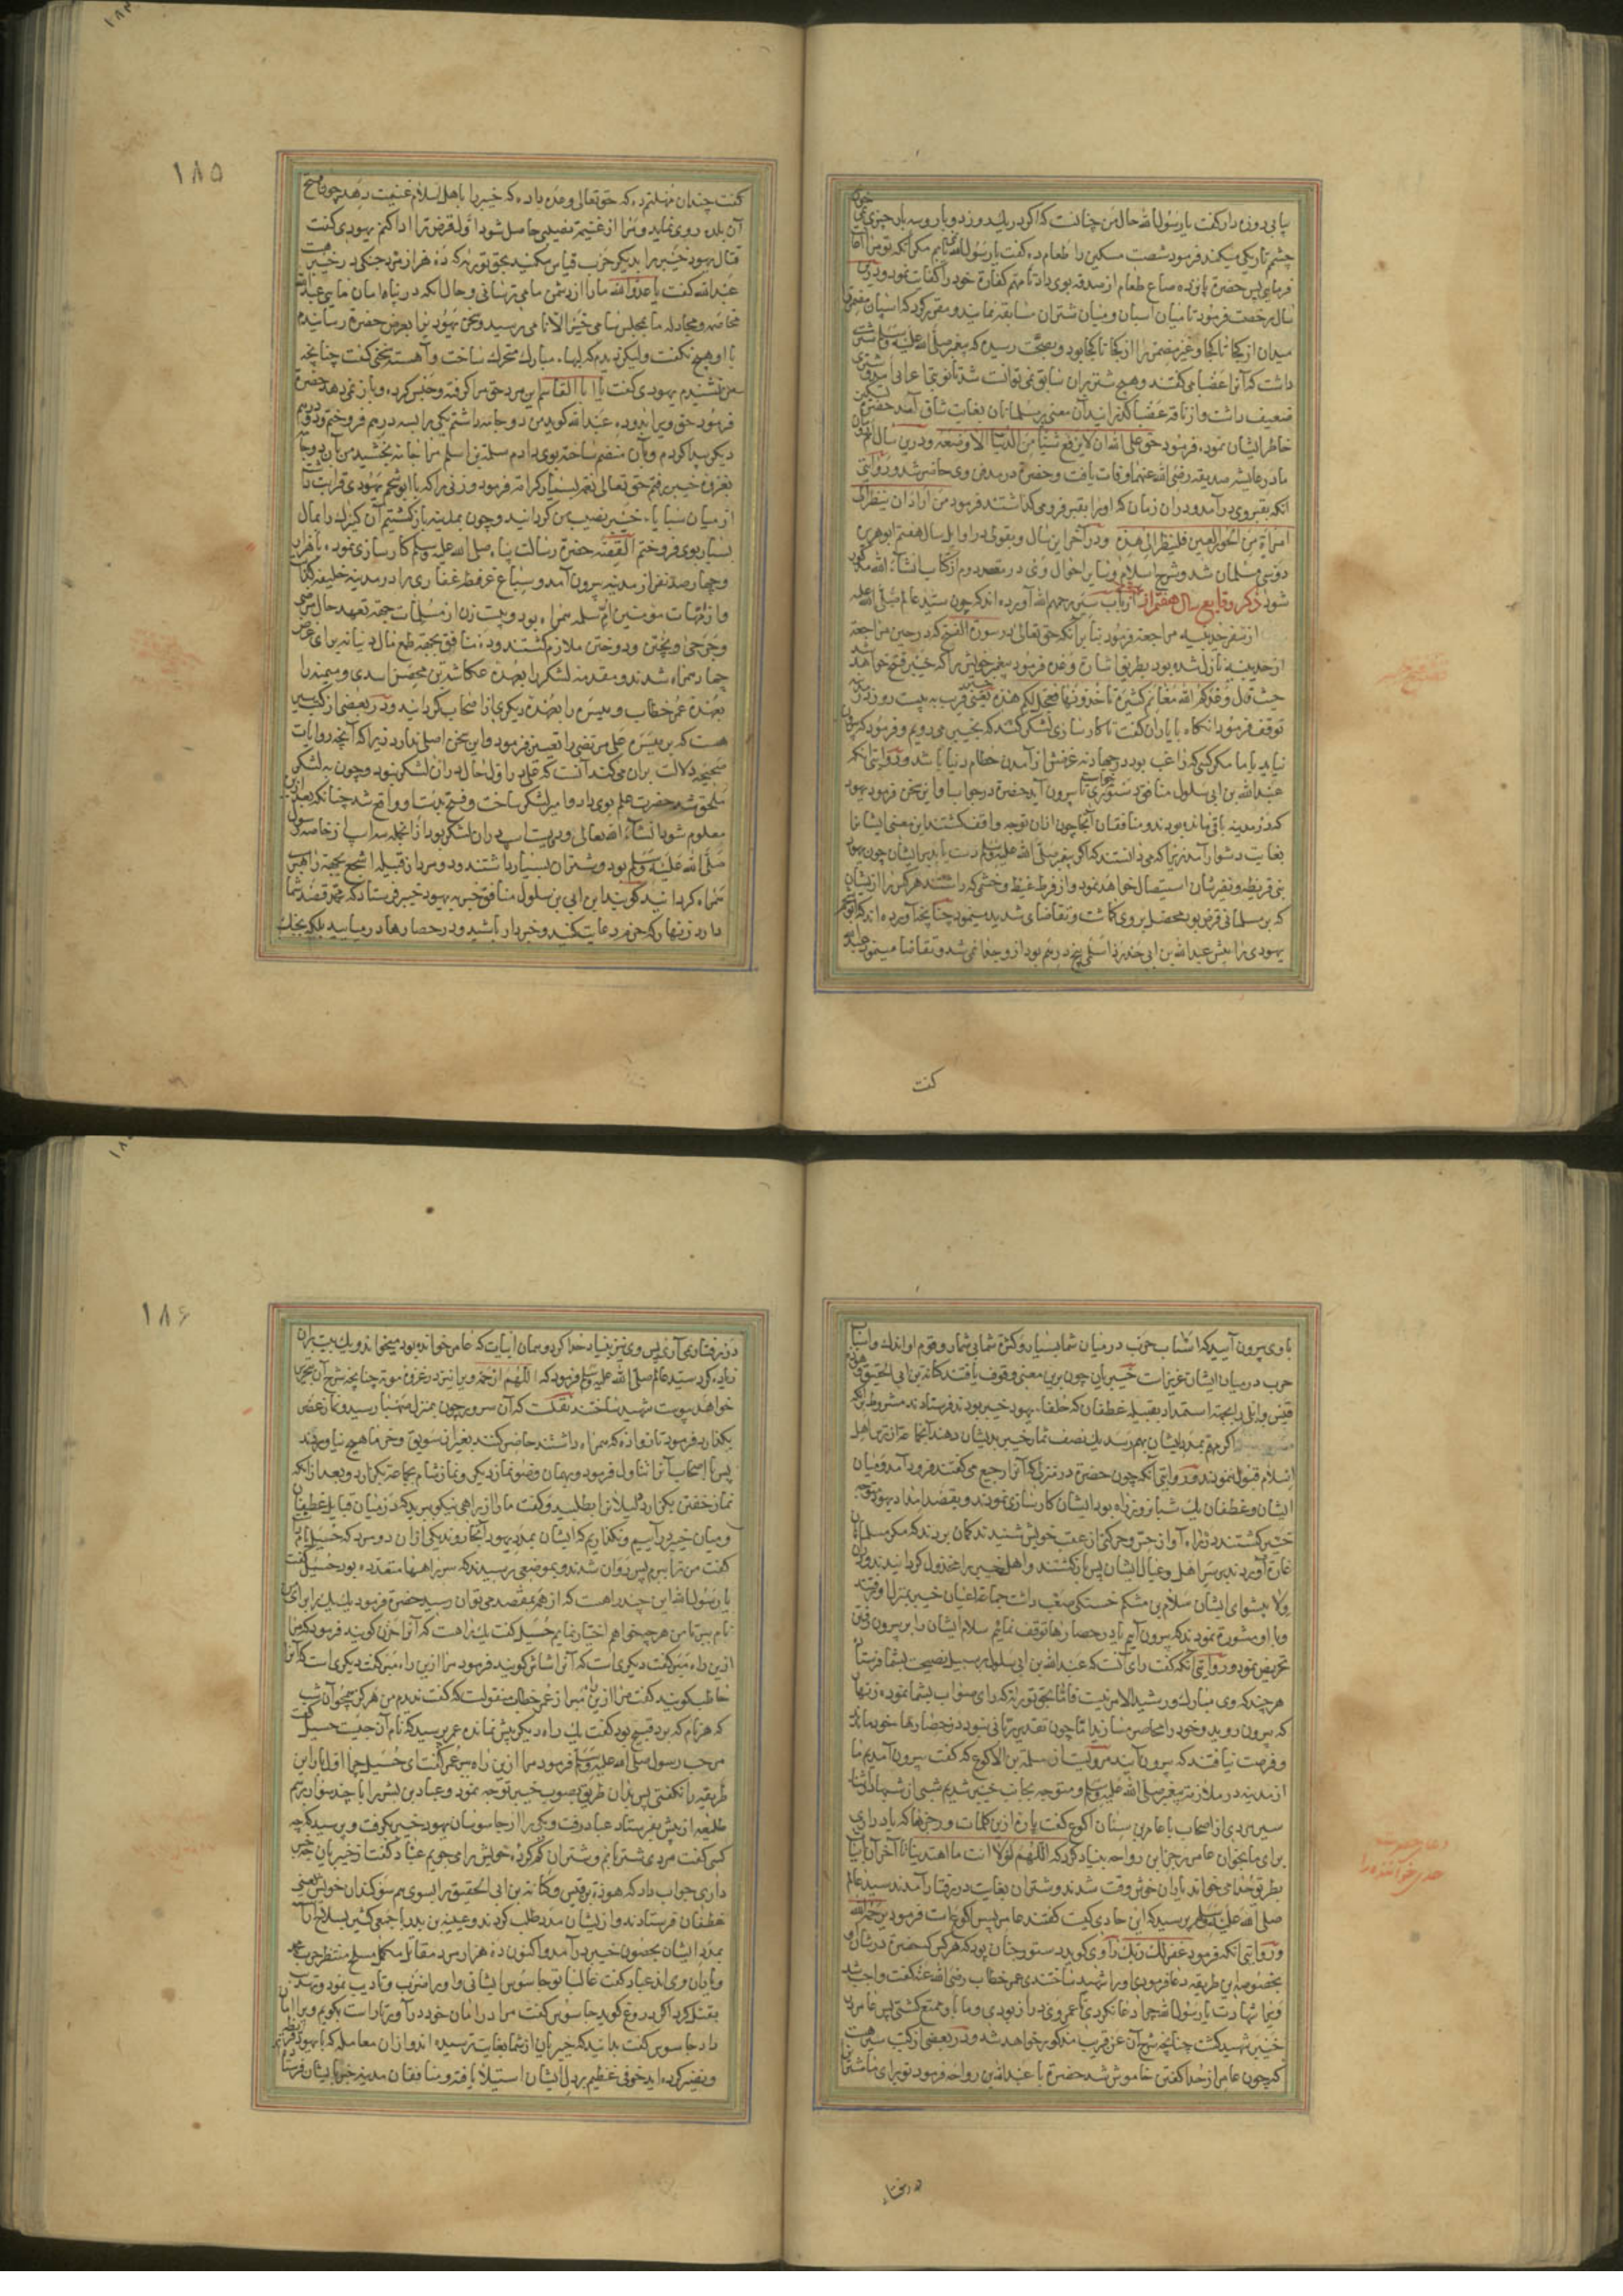 پیاپی روزه دار گفت یا رسول الله حال من چنانست که اگر در یک روز دو بار و سه بار چیزی نمی خورم
چشم تاریکی میکند فرمود شصت مسکین را طعام ده گفت یا رسول الله نمی یابم مگر آنکه تو مرا
فرمایی پس حضرة پانزده صاع طعام از صدقه بوی داد تا مهم کفارة خود را کفایت نمود و درین
سال رخصت فرمود تا میان اسبان و میان شتران مسابقه نمایند و مقرر کرد که اسپان
میدان از کجا تا کجا و غیر مضمر را از کجا تا کجا بود و بصحت رسیده که پیغمبر صلی الله علیه وسلم شتری
داشت که آنرا عضبا می گفتند و هیچ شتر بران سابق نمی توانست شد تا نوبتی اعرابی شتری
ضعیف داشت و از ناقه عضبا گذرانید آن معنی بر مسلمانان بغایت شاق آمد حضرة تسکین
خاطر ایشان نمود، فرمود حق علی الله ان لا یرفع شیئا من الدنیا الا وضعه و درین سال ام رومان
مادر عایشه صدیقه رضی الله عنهما وفات یافت و حضرة در مدفن وی حاضر شد و روایتی
آنکه بقبر وی درآمد و دران زمان که او را بقبر فرو می گذاشتند فرمود من اراد ان ینظر الی
امراة من الحور العین فلینظر الی هذه و در آخر این سال و بقولی در اوایل سال هفتم ابو هریره
دوسی مسلمان شد و شرح اسلام و سایر احوال وی در مقصد دوم از کتاب انشاء الله مذکور
شود ذکر وقایع سال هفتم از هجرت ارباب سیر رحمهم الله آورده اند که چون سید عالم صلی الله علیه
از سفر حدیبیه مراجعه فرمود بنا بر آنکه حق تعالی در سورة الفتح که در حین مراجعة
از حدیبیه نازل شده بود بطریق اشارة وعده فرمود پیغمبر خویش را که خیبر فتح خواهد شد
حیث قال وعدکم الله مغانم کثیرة تاخذونها فعجل لکم هذه یعنی قریب به بیست روز در مدینه
توقف فرمود آنکاه با یاران گفت تا کار سازی لشکر کنند که بخیبر می رویم و فرمود که
نیاید با ما مگر کسی که راغب بود در جهاد نه غرضش از آمدن حطام دنیا باشد و روایتی آنکه
عبدالله بن ابی سلول منافق دستوری خواست تا بیرون آید حضرة در جواب او این سخن فرمود یهود
که در مدینه باقی مانده بودند و منافقان آنجا چون ازان توجه واقف گشتند این معنی ایشان را
بغایت دشوار آمد زیرا که می دانستند که اگر پیغمبر صلی الله علیه وسلم دست یابد بر ایشان چون یهود
بنی قریظه و نضیر شان استیصال خواهد نمود و از فرط غیظ و خشمی که داشتند هرکس را از ایشان
که بر مسلمانی قرض بود محصل بر وی گماشت و تقاضای شدید مینمود چنانچه آورده اند که ابو شحم
یهودی را پیش عبدالله بن ابی حدرد اسلمی پنج درهم بود از و جدا نمی شد و تقاضا مینمود عبدالله
گفت
۱۸۵
گفت چندان مهلتم ده که حق تعالی وعده داده که خیبر را باهل اسلام غنیمت دهد چون فتح
آن بلده روی نماید و مرا از غنیمة نصیبی حاصل شود اول قرض ترا ادا کنم یهودی گفت
قتال یهود خیبر را بدیگر حرب قیاس مکنید بحق توریة که ده هزار مرد جنگی در خیبر هست
عبدالله گفت یا عدو الله ما را از دشمن ما می ترسانی و حال آنکه در پناه امان مایی عبدالله
مخاصمه و مجادله ما بمجلس سامی خیر الانامی رسید و سخن یهود را بعرض حضرة رسانیدم
با او هیچ نگفت ولیکن دیدم که لبهاء مبارک متحرک ساخت و آهسته سخنی گفت چنانچه
من نشنیدم یهودی گفت یا ابا القاسم این مرد حق مرا گرفته و حبس کرده و باز نمی دهد حضرة
فرمود حق ویرا بده، عبدالله گوید من دو جامه داشتم یکی را بسه درهم فروختم و دو درهم
دیگر پیدا کردم و بآن منضم ساخته بوی دادم سلمة بن اسلم مرا جامه بخشید من بآن دو جامه
بغزوه خیبر رفتم حق تعالی نعم بسیار کرامة فرمود و زنی را که با ابو شحم یهودی قرابت داشت
از میان سبایاء خیبر نصیب من گردانید و چون بمدینه بازگشتیم آن کنیزک را بمال
بسیار بوی فروختم القصه حضرة رسالت پناه صلی الله علیه وسلم کار سازی نموده با هزار
و چهار صد نفر از مدینه بیرون آمد و سباع عرفطه غفاری را در مدینه خلیفه گذاشت
و از امهات مومنین ام سلمه همراه بود و بیست زن از مسلمات جهة تعهد حال مرضی
و جرحی و پختن و دوختن ملازم گشتند و ده منافق بجهة طمع مال دنیا نه برای
جهاد همراه شدند و مقدمه لشکر را بعهده عکاشة بن محصن اسدی و میمنه را
بعهدة عمر خطاب و میسره را بعهده دیگری از اصحاب گردانید و در بعضی از کتب سیر
هست که بر میسره علی مرتضی را تعیین فرمود و این سخن اصلی ندارد زیرا که آنچه روایات
صحیحه دلالت بران می کند آنست که علی در اول حال در ان لشکر نبود و چون به لشکر
ملحق شد حضرت علم بوی داد و امیر لشکر ساخت و فتح بدست او واقع شد چنانکه بعد ازین
معلوم شود انشاء الله تعالی و دویست اسپ در ان لشکر بود از آنجمله سه اسپ از خاصه رسول
صلی الله علیه وسلم بود و شتران بسیار داشتند و دو مرد از قبیله اشجع بجهة راهبری
همراه گردانید گویند ابن ابی بن سلول منافق خبر به یهود خیبر فرستاد که محمد قصد شما
دارد زنهار که حزم رعایت کنید و خبردار باشید و در حصارها در میایید بلکه بجنگ
با وی بیرون آیید که اسباب حرب در میان شما بسیار و کثرة شما بی شمار و قوم او اندک و اسباب
حرب در میان ایشان عزیزست خیبریان چون برین معنی وقوف یافتند کنانة بن ابی الحقیق
قیس وایلی را بجهة استمداد بقبیله غطفان که حلفاء یهود خیبر بودند فرستادند مشروط بآنکه
اگر بهم بمدد ایشان بهم رسد یک نصف ثمار خیبر بدیشان دهند آنجماعة از ترس اهل
اسلام قبول ننمودند و روایتی آنکه چون حضرة در منزلی که آنرا رجیع می گفتند فرود آمد و میان
ایشان و غطفان یک شبانروز راه بود ایشان کار سازی نمودند و بقصد امداد یهود متوجه
خیبر گشتند در راه آواز حس و حرکتی از عقب خویش شنیدند گمان بردند که مگر مسلمانان
غارة آوردند بر سر اهل و عیال ایشان پس بازگشتند و اهل خیبر را مخذول گردانیدند و دران
ولا پیشوای ایشان سلام بن مشکم خستگی صعب داشت جماعة اعیان خیبر بمنزل او رفتند
و با او مشورة نمودند که بیرون آییم یا در حصارها توقف نماییم سلام ایشان را بر بیرون رفتن
تحریض نمود و روایتی آنکه گفت رای آنست که عبدالله بن ابی سلول بر سبیل نصیحت بشما فرستاد
هر چند که وی مبارک و رشید الامر نیست فاما بحق توریة که رای صواب بشما نموده زنهار
که بیرون روید و خود را محاصر مسازید اما چون تقدیر ربانی نبود در حصارها خود ماندند
و فرصت نیافتند که بیرون آیند مرویست از سلمة بن الاکوع که گفت بیرون آمدیم ما
از مدینه در ملازمة پیغمبر صلی الله علیه وسلم و متوجه بجانب خیبر شدیم شبی از شبها در اثنای
سیر مردی از اصحاب با عامر بن سنان اکوع گفت پاره ازین کلمات و رجزها که یاد داری
برای ما بخوان عامر رجز ابن رواحه بنیاد کرد که اللهم لولا انت ما اهتدینا تا آخر آن ابیات
بطریق حدا می خواند یاران خوش وقت شدند و شتران بغایت در رفتار آمدند سید عالم
صلی الله علیه وسلم پرسید که این حادی کیست گفتند عامر بن اکوع است فرمود یرحمه الله
و روایتی آنکه فرمود غفر لک ربک راوی گوید دستور چنان بود که هرکس که حضرة در شان او
بخصوصه این طریقه دعا فرمودی او را شهید ساختندی عمر خطاب رضی الله عنه گفت واجب شد
ویرا شهادت یا رسول الله چرا دعا نکردی تا عمر وی دراز بودی و ما باو ممتع گشتی پس عامر در
خیبر شهید گشت چنانچه شرح آن عنقریب مذکور خواهد شد و در بعضی از کتب سیر هست
که چون عامر از حدا گفتن خاموش شد حضرة با عبدالله بن رواحه فرمود تو برای ما شتران
۱۸۶
در رفتار نمی آری پس وی نیز بنیاد حدا کرد و همان ابیات که عامر خوانده بود میخواند و یک بیت بران
زیاده کرد سید عالم صلی الله علیه وسلم فرمود که اللهم ارحمه ویرا نیز در غزوه موته چنانچه شرح آن
خواهد پیوست شهید ساختند نقلست که آن سرور چون بمنزل صهبا رسید و نماز عصر
بگذارد فرمود تا زوادة که همراه داشتند حاضر کنند بغیر از سویق و خرما هیچ نیاوردند
پس با اصحاب آنرا تناول فرمود و بهمان وضو نماز دیگر و نماز شام بجماعة بگزارد و بعد از آنکه
نماز خفتن بگزارد دلیلان را بطلبید و گفت ما را از راهی نیکو ببرید که در میان قبایل غطفان
و میان خیبر درآییم و نگذاریم که ایشان بمدد یهود آنجا روند یکی ازان دو مرد که حسیل نام
گفت من ترا ببرم پس روان شدند و بموضعی رسیدند که سر راهها متعدده بود حسیل گفت
یا رسول الله این چند راهست که از همه بمقصد می توان رسید حضرة فرمود یک یک را برای من
نام ببر تا من هرچه خواهم اختیار نمایم حسیل گفت یک راهست که آنرا حزن گویند فرمود که مرا
ازین راه مبر گفت دیگری است که آنرا شاش گویند فرمود مرا ازین راه مبر گفت دیگری است که آنرا
حاطب گویند گفت مرا ازین راه مبر از عمر خطاب منقولست که گفت ندیدم من هرگز همچو آن شب
که هر نام که برد قبیح بود گفت یک راه دیگر بیش نمانده عمر پرسید که نام آن چیست حسیل گفت
مرحب رسول صلی الله علیه وسلم فرمود مرا ازین راه ببر عمر گفت ای حسیل چرا اول بار این
طریقه را نگفتی پس بدان طریق بصوب خیبر توجه نمود و عباد بن بشر را با چند سوار برسم
طلیعه از پیش بفرستاد عباد رفت و یکی را از جاسوسان یهود خیبر بگرفت و پرسید که چه
کسی گفت مردی شتربانم و شتران گم کرده خویش را می جویم عباد گفت از خیبریان خبر
داری جواب داد که هوذة بن قیس و کنانة بن ابی الحقیق را بسوی هم سوگندان خویش یعنی
غطفان فرستادند و از ایشان مدد طلب کردند و عیینه بن بدر با جمعی کثیر بسلاح تمام
بمدد ایشان بحصون خیبر درآمد و اکنون ده هزار مرد مقاتل مکمل مسلح منتظر حرب محمد
و یاران وی اند عباد گفت غالبا تو جاسوس ایشانی و او را ضرب و تادیب نمود و تهدید
بقتل کرد اگر دروغ گوید جاسوس گفت مرا در امان خود درآور تا راست بگویم ویرا امان
داد جاسوس گفت بدانید که خیبریان از شما بغایت ترسیده اند و ازان معامله که با یهود قریظه
و نضیر کرده اید خوفی عظیم بر دل ایشان استیلا یافته و منافقان مدینه خبر بایشان فرستاده